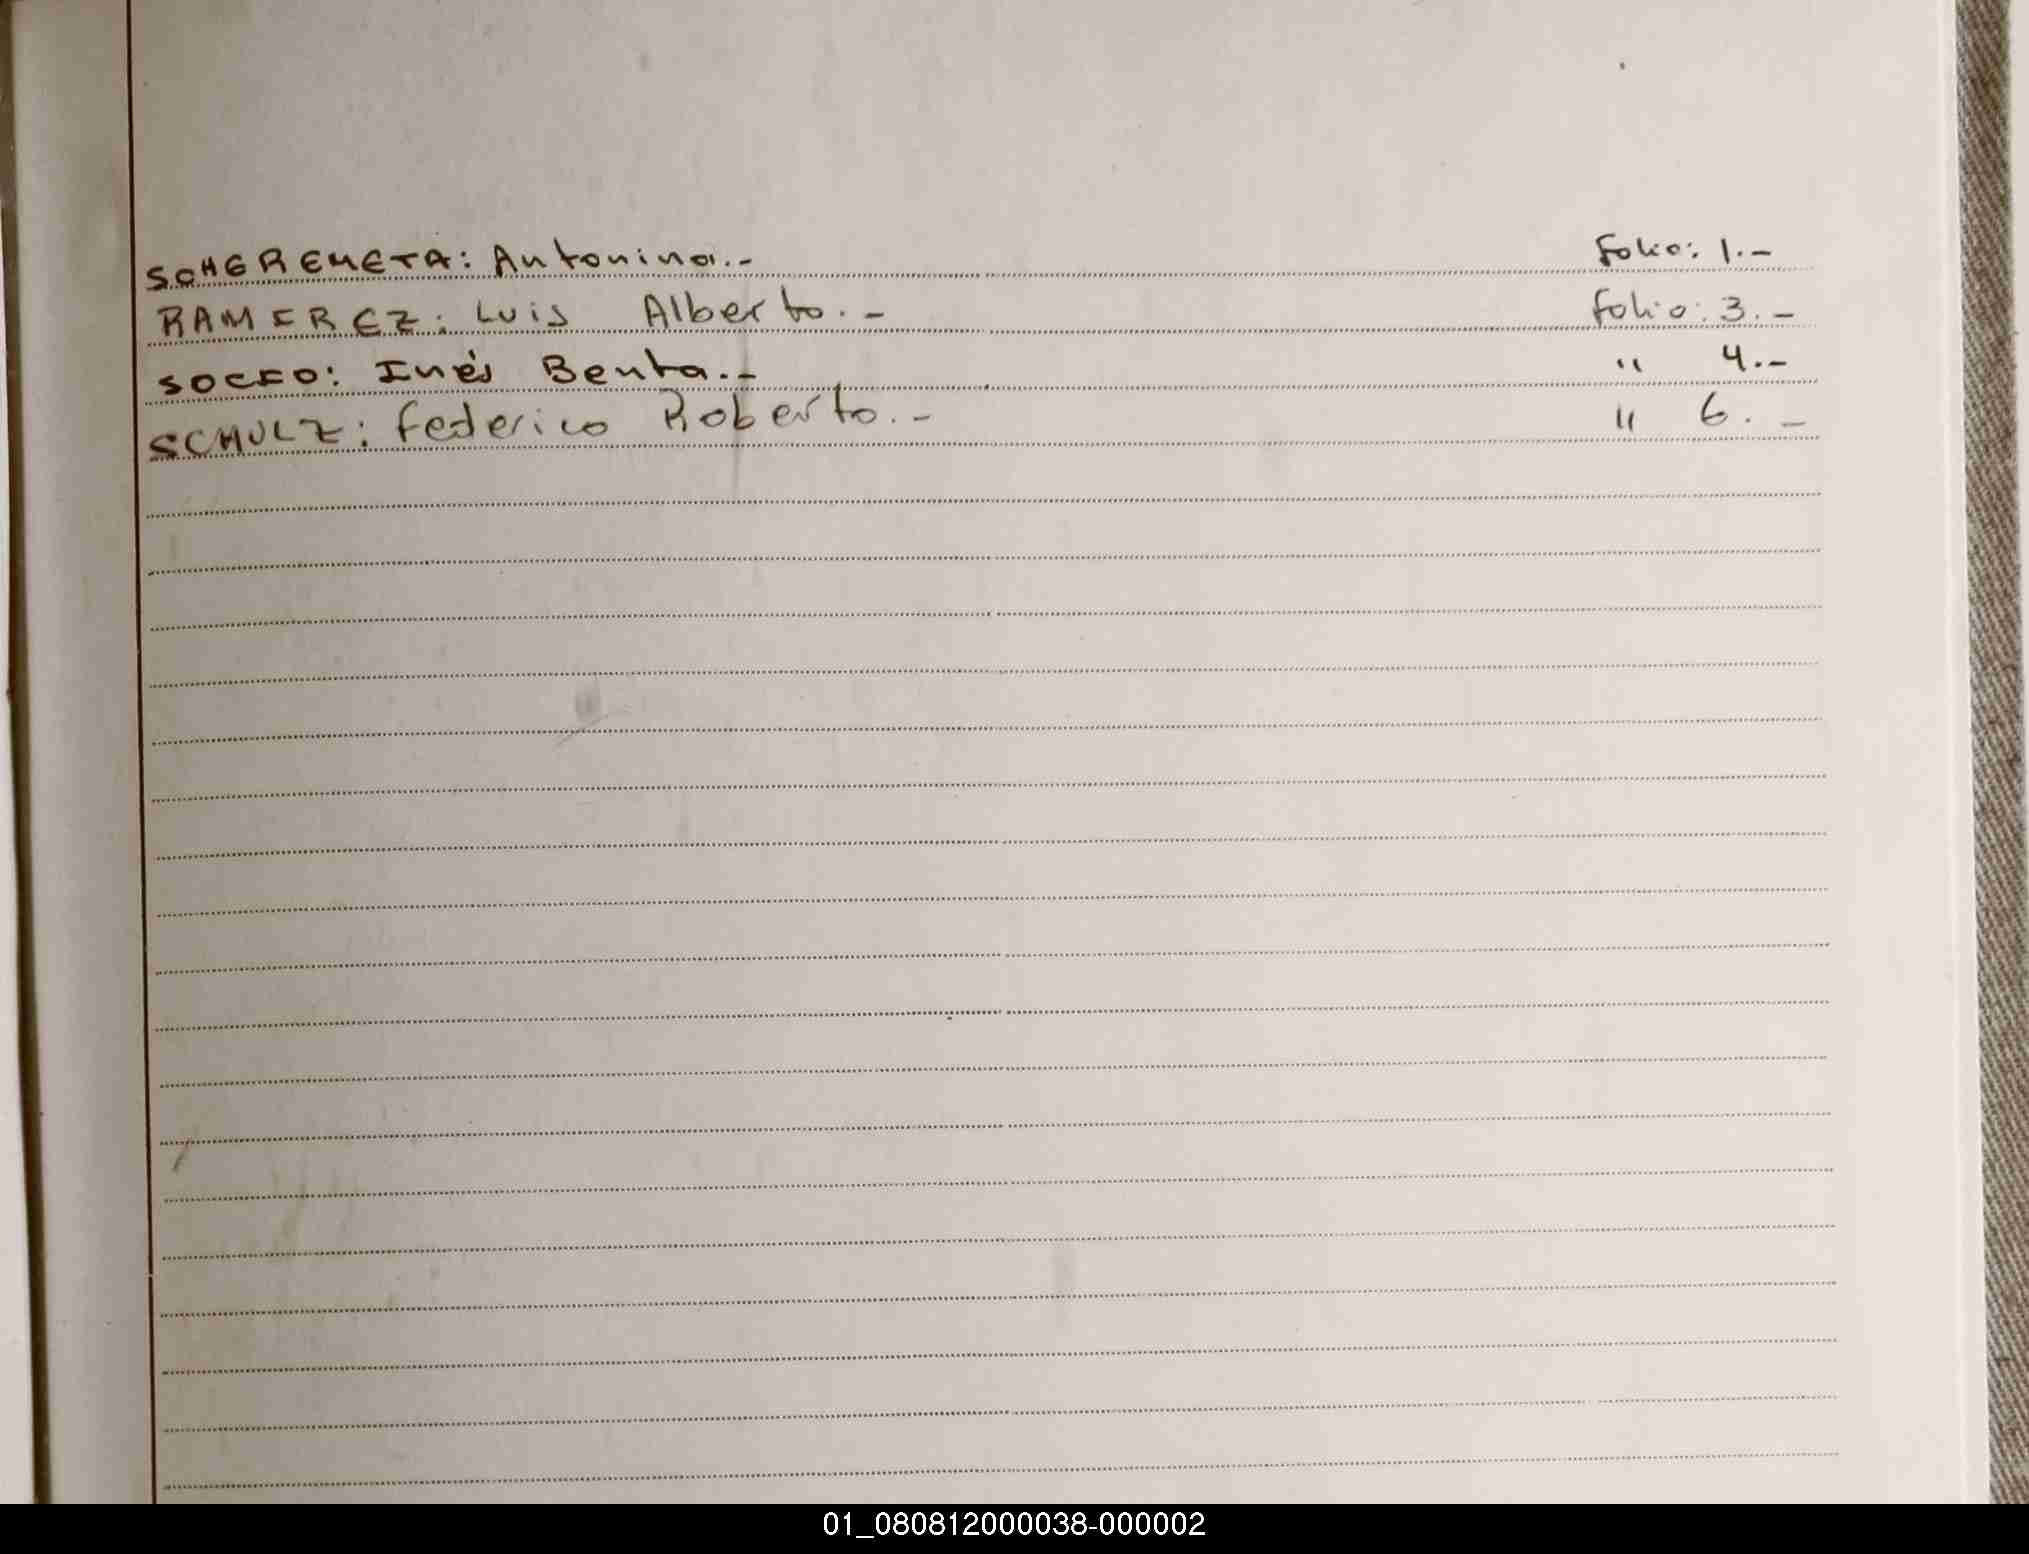 SCHEREMETA: Antonina.- Folio: 1.-
RAMIREZ: Luis Alberto.- folio: 3.-
SOCIO: Inés Benta.- " 4.-
SCHULZ: Federico Roberto.- " 6.-
01_080812000038-000002